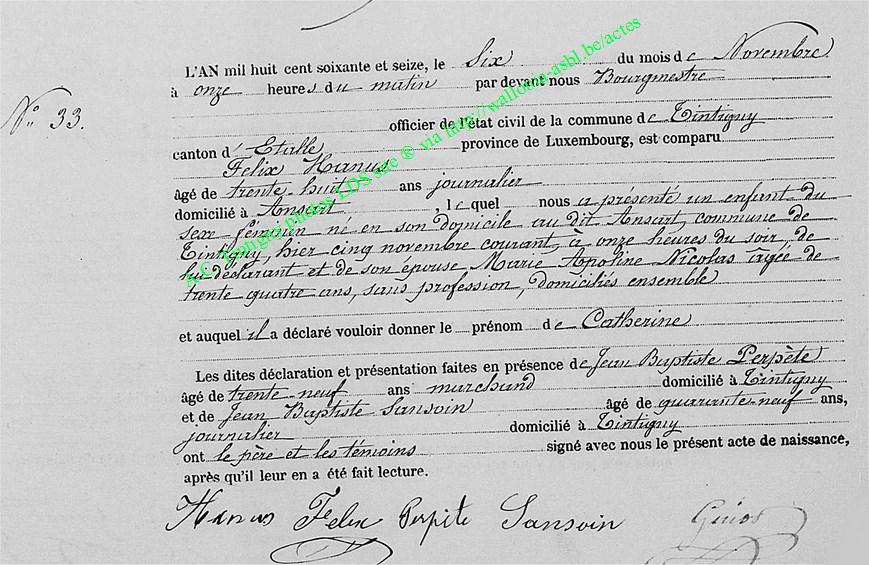 L'AN mil huit cent soixante et seize, le Six du mois de Novembre
à onze heures du matin par devant nous Bourgmestre
N° 33.
officier de l'état civil de la commune de Tintigny
canton d'Etalle province de Luxembourg, est comparu
Felix Hanus
âgé de trente-huit ans journalier
domicilié à Ansart, lequel nous a présenté un enfant du
sexe féminin né en son domicile au dit Ansart, commune de
Tintigny, hier cinq novembre courant, à onze heures du soir, de
lui déclarant et de son épouse, Marie Apoline Nicolas âgée de
trente quatre ans, sans profession, domiciliés ensemble
et auquel il a déclaré vouloir donner le prénom de Catherine
Les dites déclaration et présentation faites en présence de Jean Baptiste Perpète
âgé de trente-neuf ans marchand domicilié à Tintigny
et de Jean Baptiste Sansoin âgé de quarante-neuf ans,
journalier domicilié à Tintigny
ont le père et les témoins signé avec nous le présent acte de naissance,
après qu'il leur en a été fait lecture.
Hanus Felix Perpète Sansoin
A.C. Tintigny photos LDS site ® via http://wallonia-asbl.be/actes